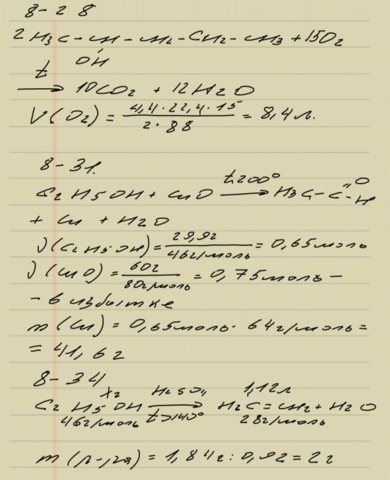 8-28
2H₃C-CH-CH₂-CH₂-CH₃+15O₂
OH
t → 10CO₂ + 12H₂O
V(O₂) = 4,4·22,4·15 / 2·88 = 8,4л.
8-31.
C₂H₅OH + CuO t,200° → H₃C-C=O-H
+ Cu + H₂O
ν(C₂H₅OH) = 29,9г / 46г/моль = 0,65моль
ν(CuO) = 60г / 80г/моль = 0,75моль -
- в избытке
m(Cu) = 0,65моль · 64г/моль =
= 41,6г
8-34
Xг H₂SO₄ 1,12л
C₂H₅OH → H₂C=CH₂+H₂O
46г/моль t>140° 28г/моль
m(р-ра) = 1,84г : 0,92 = 2г